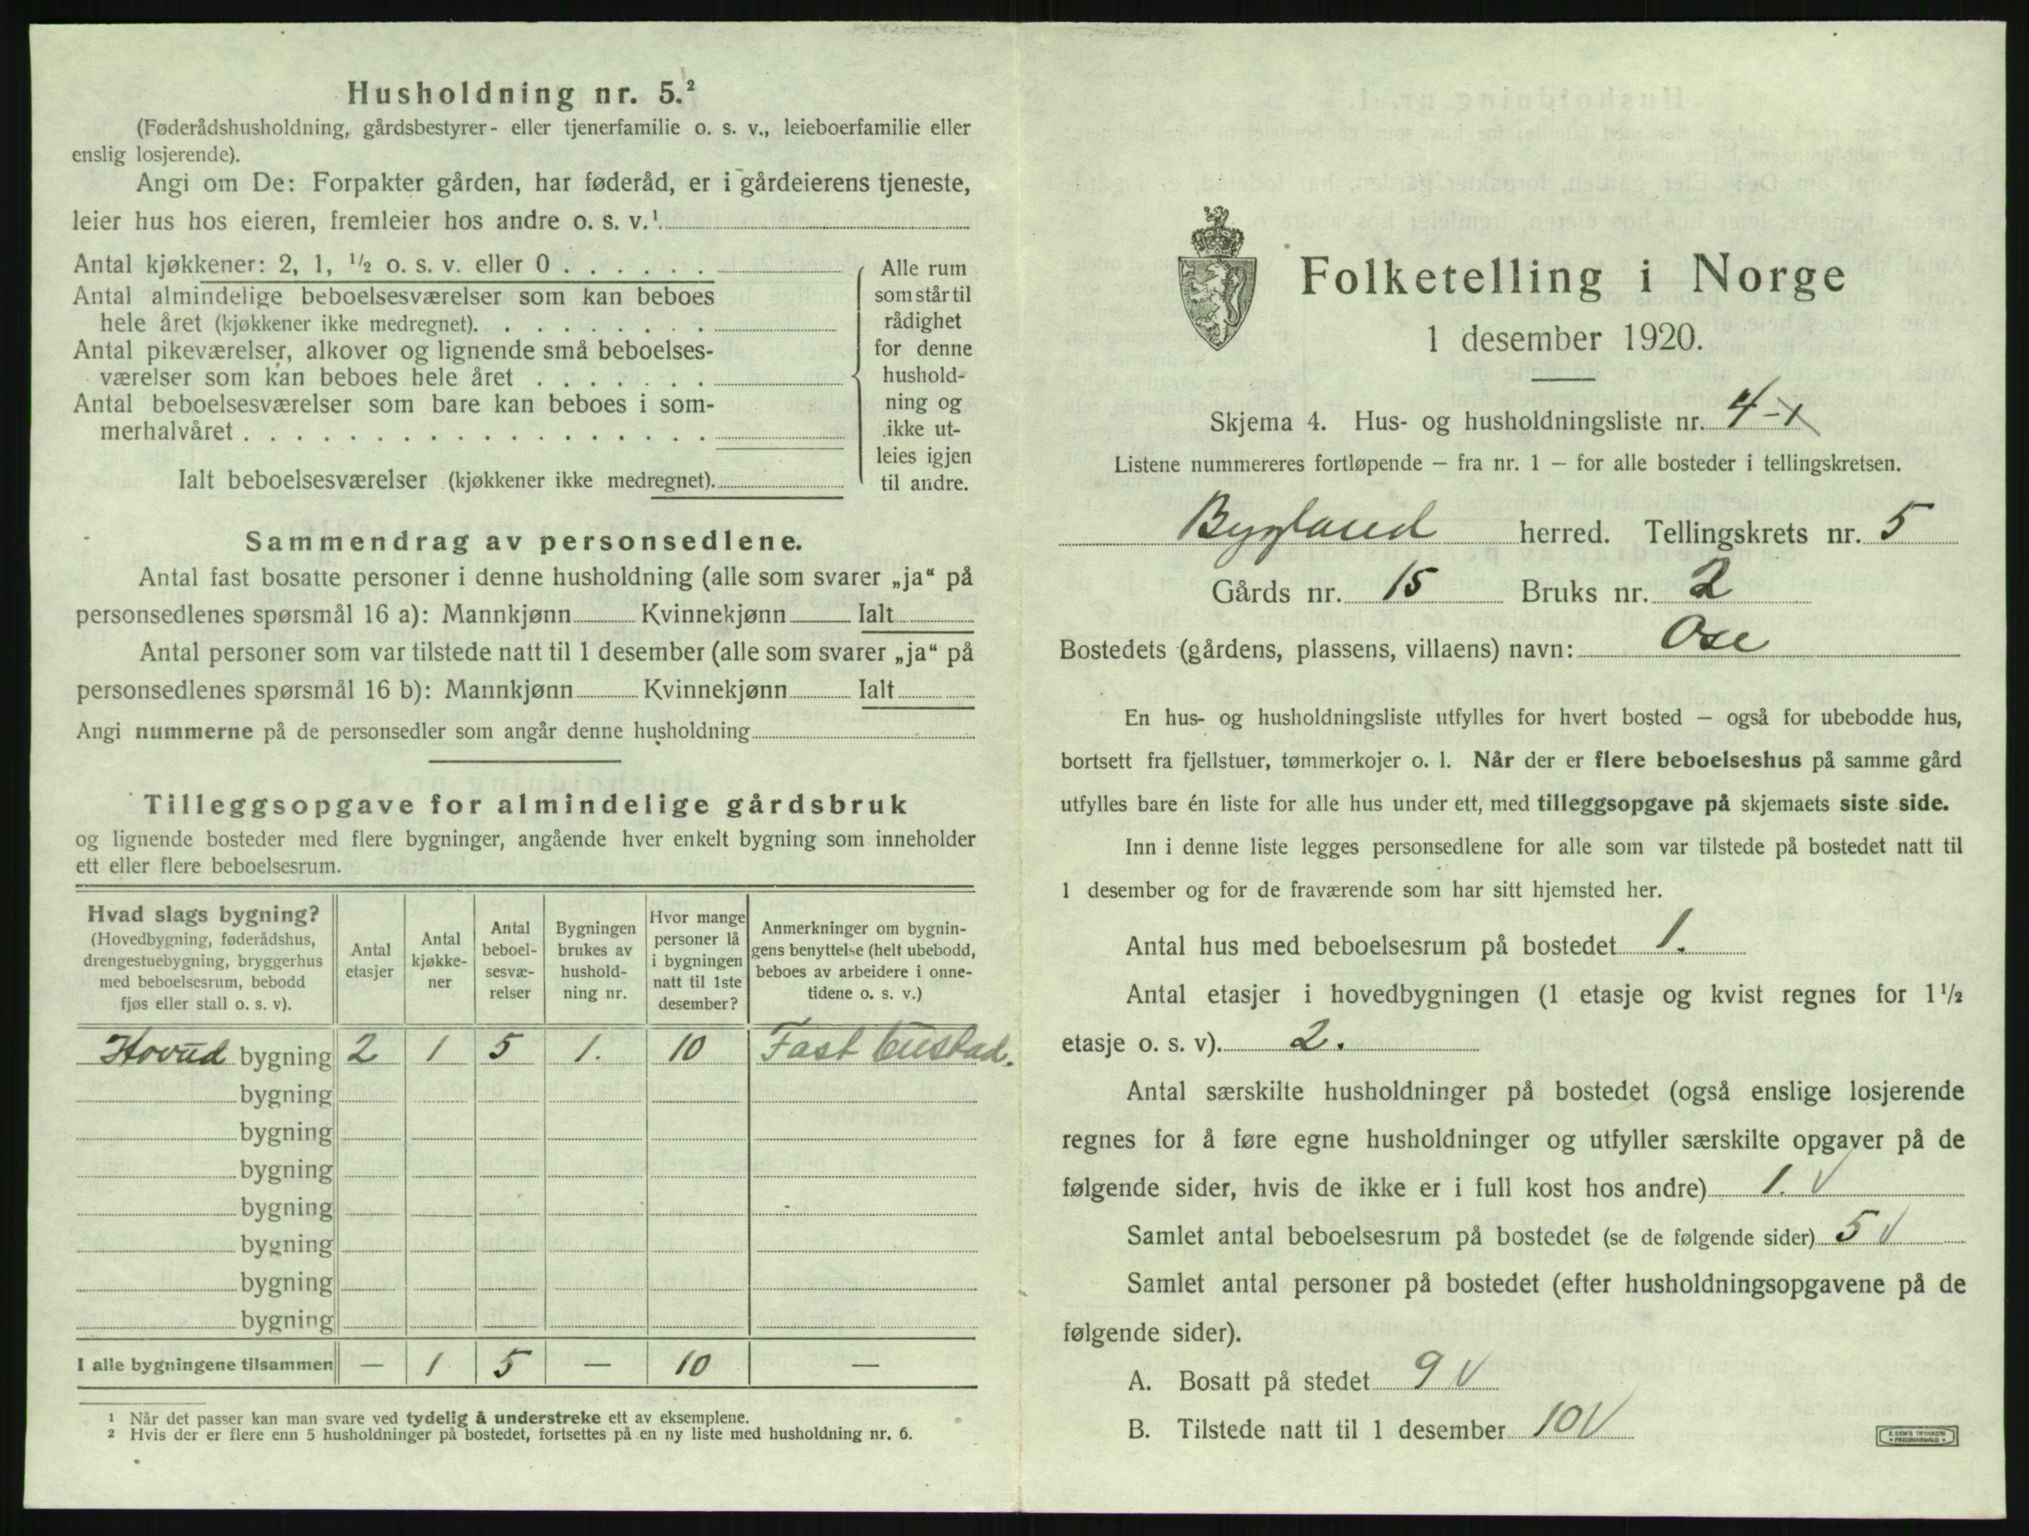 Husholdning nr. 5.²
(Føderådshusholdning, gårdsbestyrer- eller tjenerfamilie o. s. v., leieboerfamilie eller
enslig losjerende).
Angi om De: Forpakter gården, har føderåd, er i gårdeierens tjeneste,
leier hus hos eieren, fremleier hos andre o. s. v.¹
Antal kjøkkener: 2, 1, ¹/₂ o. s. v. eller 0 . . . . . .
Antal almindelige beboelsesværelser som kan beboes
hele året (kjøkkener ikke medregnet). . . . . . . . .
Antal pikeværelser, alkover og lignende små beboelses-
værelser som kan beboes hele året . . . . . . .
Antal beboelsesværelser som bare kan beboes i som-
merhalvåret . . . . . . . . . . . . . . . . . .
Ialt beboelsesværelser (kjøkkener ikke medregnet).
Alle rum
som står til
rådighet
for denne
hushold-
ning og
ikke ut-
leies igjen
til andre.
Sammendrag av personsedlene.
Antal fast bosatte personer i denne husholdning (alle som svarer „ja“ på
personsedlenes spørsmål 16 a): Mannkjønn Kvinnekjønn Ialt
Antal personer som var tilstede natt til 1 desember (alle som svarer „ja“ på
personsedlenes spørsmål 16 b): Mannkjønn Kvinnekjønn Ialt
Angi nummerne på de personsedler som angår denne husholdning
Tilleggsopgave for almindelige gårdsbruk
og lignende bosteder med flere bygninger, angående hver enkelt bygning som inneholder
ett eller flere beboelsesrum.
Hvad slags bygning?
(Hovedbygning, føderådshus,
drengestuebygning, bryggerhus
med beboelsesrum, bebodd
fjøs eller stall o. s. v).
Antal
etasjer
Antal
kjøkke-
ner
Antal
beboel-
sesvæ-
relser
Bygningen
brukes av
hushold-
ning nr.
Hvor mange
personer lå
i bygningen
natt til 1ste
desember?
Anmerkninger om bygnin-
gens benyttelse (helt ubebodd,
beboes av arbeidere i onne-
tidene o. s. v.)
Hovud bygning 2 1 5 1. 10 Fast bustad.
bygning
bygning
bygning
bygning
bygning
bygning
bygning
I alle bygningene tilsammen — 1 5 — 10 —
¹ Når det passer kan man svare ved tydelig å understreke ett av eksemplene.
² Hvis der er flere enn 5 husholdninger på bostedet, fortsettes på en ny liste med husholdning nr. 6.
Folketelling i Norge
1 desember 1920.
Skjema 4. Hus- og husholdningsliste nr. 4
Listene nummereres fortløpende – fra nr. 1 – for alle bosteder i tellingskretsen.
Bygland herred. Tellingskrets nr. 5
Gårds nr. 15 Bruks nr. 2
Bostedets (gårdens, plassens, villaens) navn: Ose
En hus- og husholdningsliste utfylles for hvert bosted – også for ubebodde hus,
bortsett fra fjellstuer, tømmerkojer o. l. Når der er flere beboelseshus på samme gård
utfylles bare én liste for alle hus under ett, med tilleggsopgave på skjemaets siste side.
Inn i denne liste legges personsedlene for alle som var tilstede på bostedet natt til
1 desember og for de fraværende som har sitt hjemsted her.
Antal hus med beboelsesrum på bostedet 1.
Antal etasjer i hovedbygningen (1 etasje og kvist regnes for 1¹/₂
etasje o. s. v). 2.
Antal særskilte husholdninger på bostedet (også enslige losjerende
regnes for å føre egne husholdninger og utfyller særskilte opgaver på de
følgende sider, hvis de ikke er i full kost hos andre) 1. √
Samlet antal beboelsesrum på bostedet (se de følgende sider) 5 √
Samlet antal personer på bostedet (efter husholdningsopgavene på de
følgende sider).
A. Bosatt på stedet 9 √
B. Tilstede natt til 1 desember 10 √